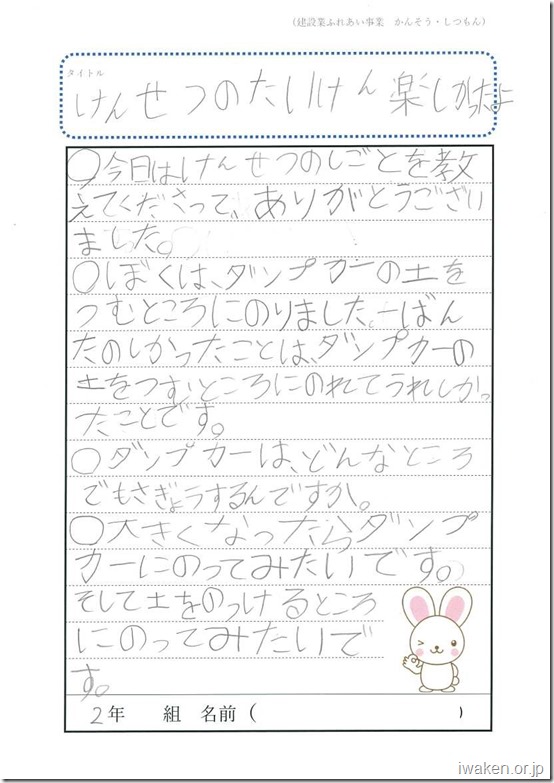 （建設業ふれあい事業　かんそう・しつもん）
タイトル
けんせつのたいけん楽しかったよ
○今日はけんせつのしごとを教
えてくださって、ありがとうござい
ました。
○ぼくは、ダンプカーの土を
つむところにのりました。一ばん
たのしかったことは、ダンプカーの
土をつむところにのれてうれしかっ
たことです。
○ダンプカーは、どんなところ
でもさぎょうするんですか。
○大きくなったらダンプ
カーにのってみたいです。
そして土をのっけるところ
にのってみたいで
す。
2年　組　名前（　　）
iwaken.or.jp